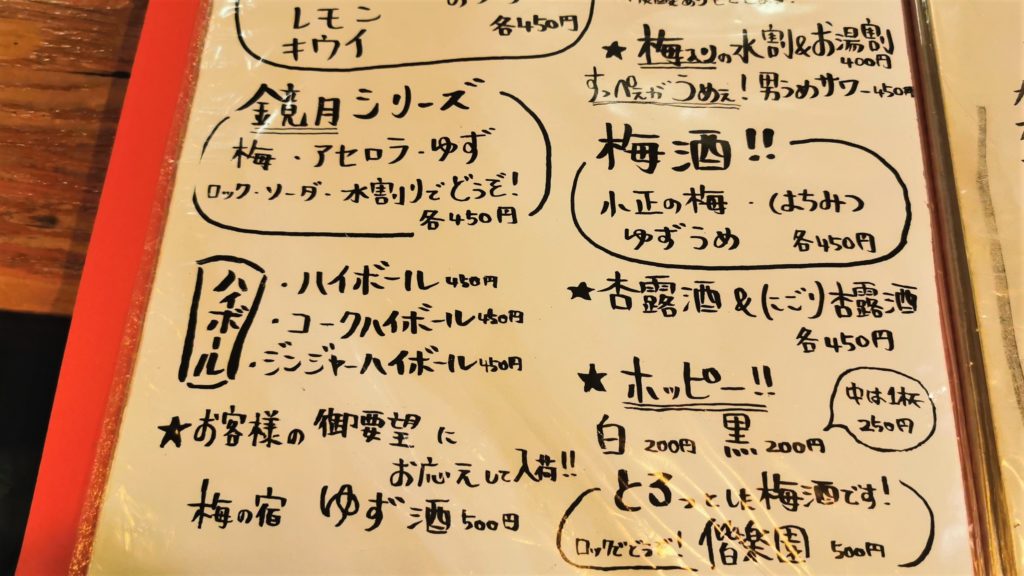 レモン
キウイ
各450円
鏡月シリーズ
梅・アセロラ・ゆず
ロック・ソーダー・水割りでどうぞ!
各450円
ハイボール
・ハイボール 450円
・コークハイボール 450円
・ジンジャーハイボール 450円
★お客様の御要望に
お応えして入荷!!
梅の宿 ゆず酒 500円
★梅入りの水割&お湯割
400円
すっぺぇがうめぇ!男うめサワー450円
梅酒!!
小正の梅・はちみつ
ゆずうめ 各450円
★杏露酒&にごり杏露酒
各450円
★ホッピー!!
中は1杯
250円
白 200円 黒 200円
とろっとした梅酒です!
ロックでどうぞ! 偕楽園 500円